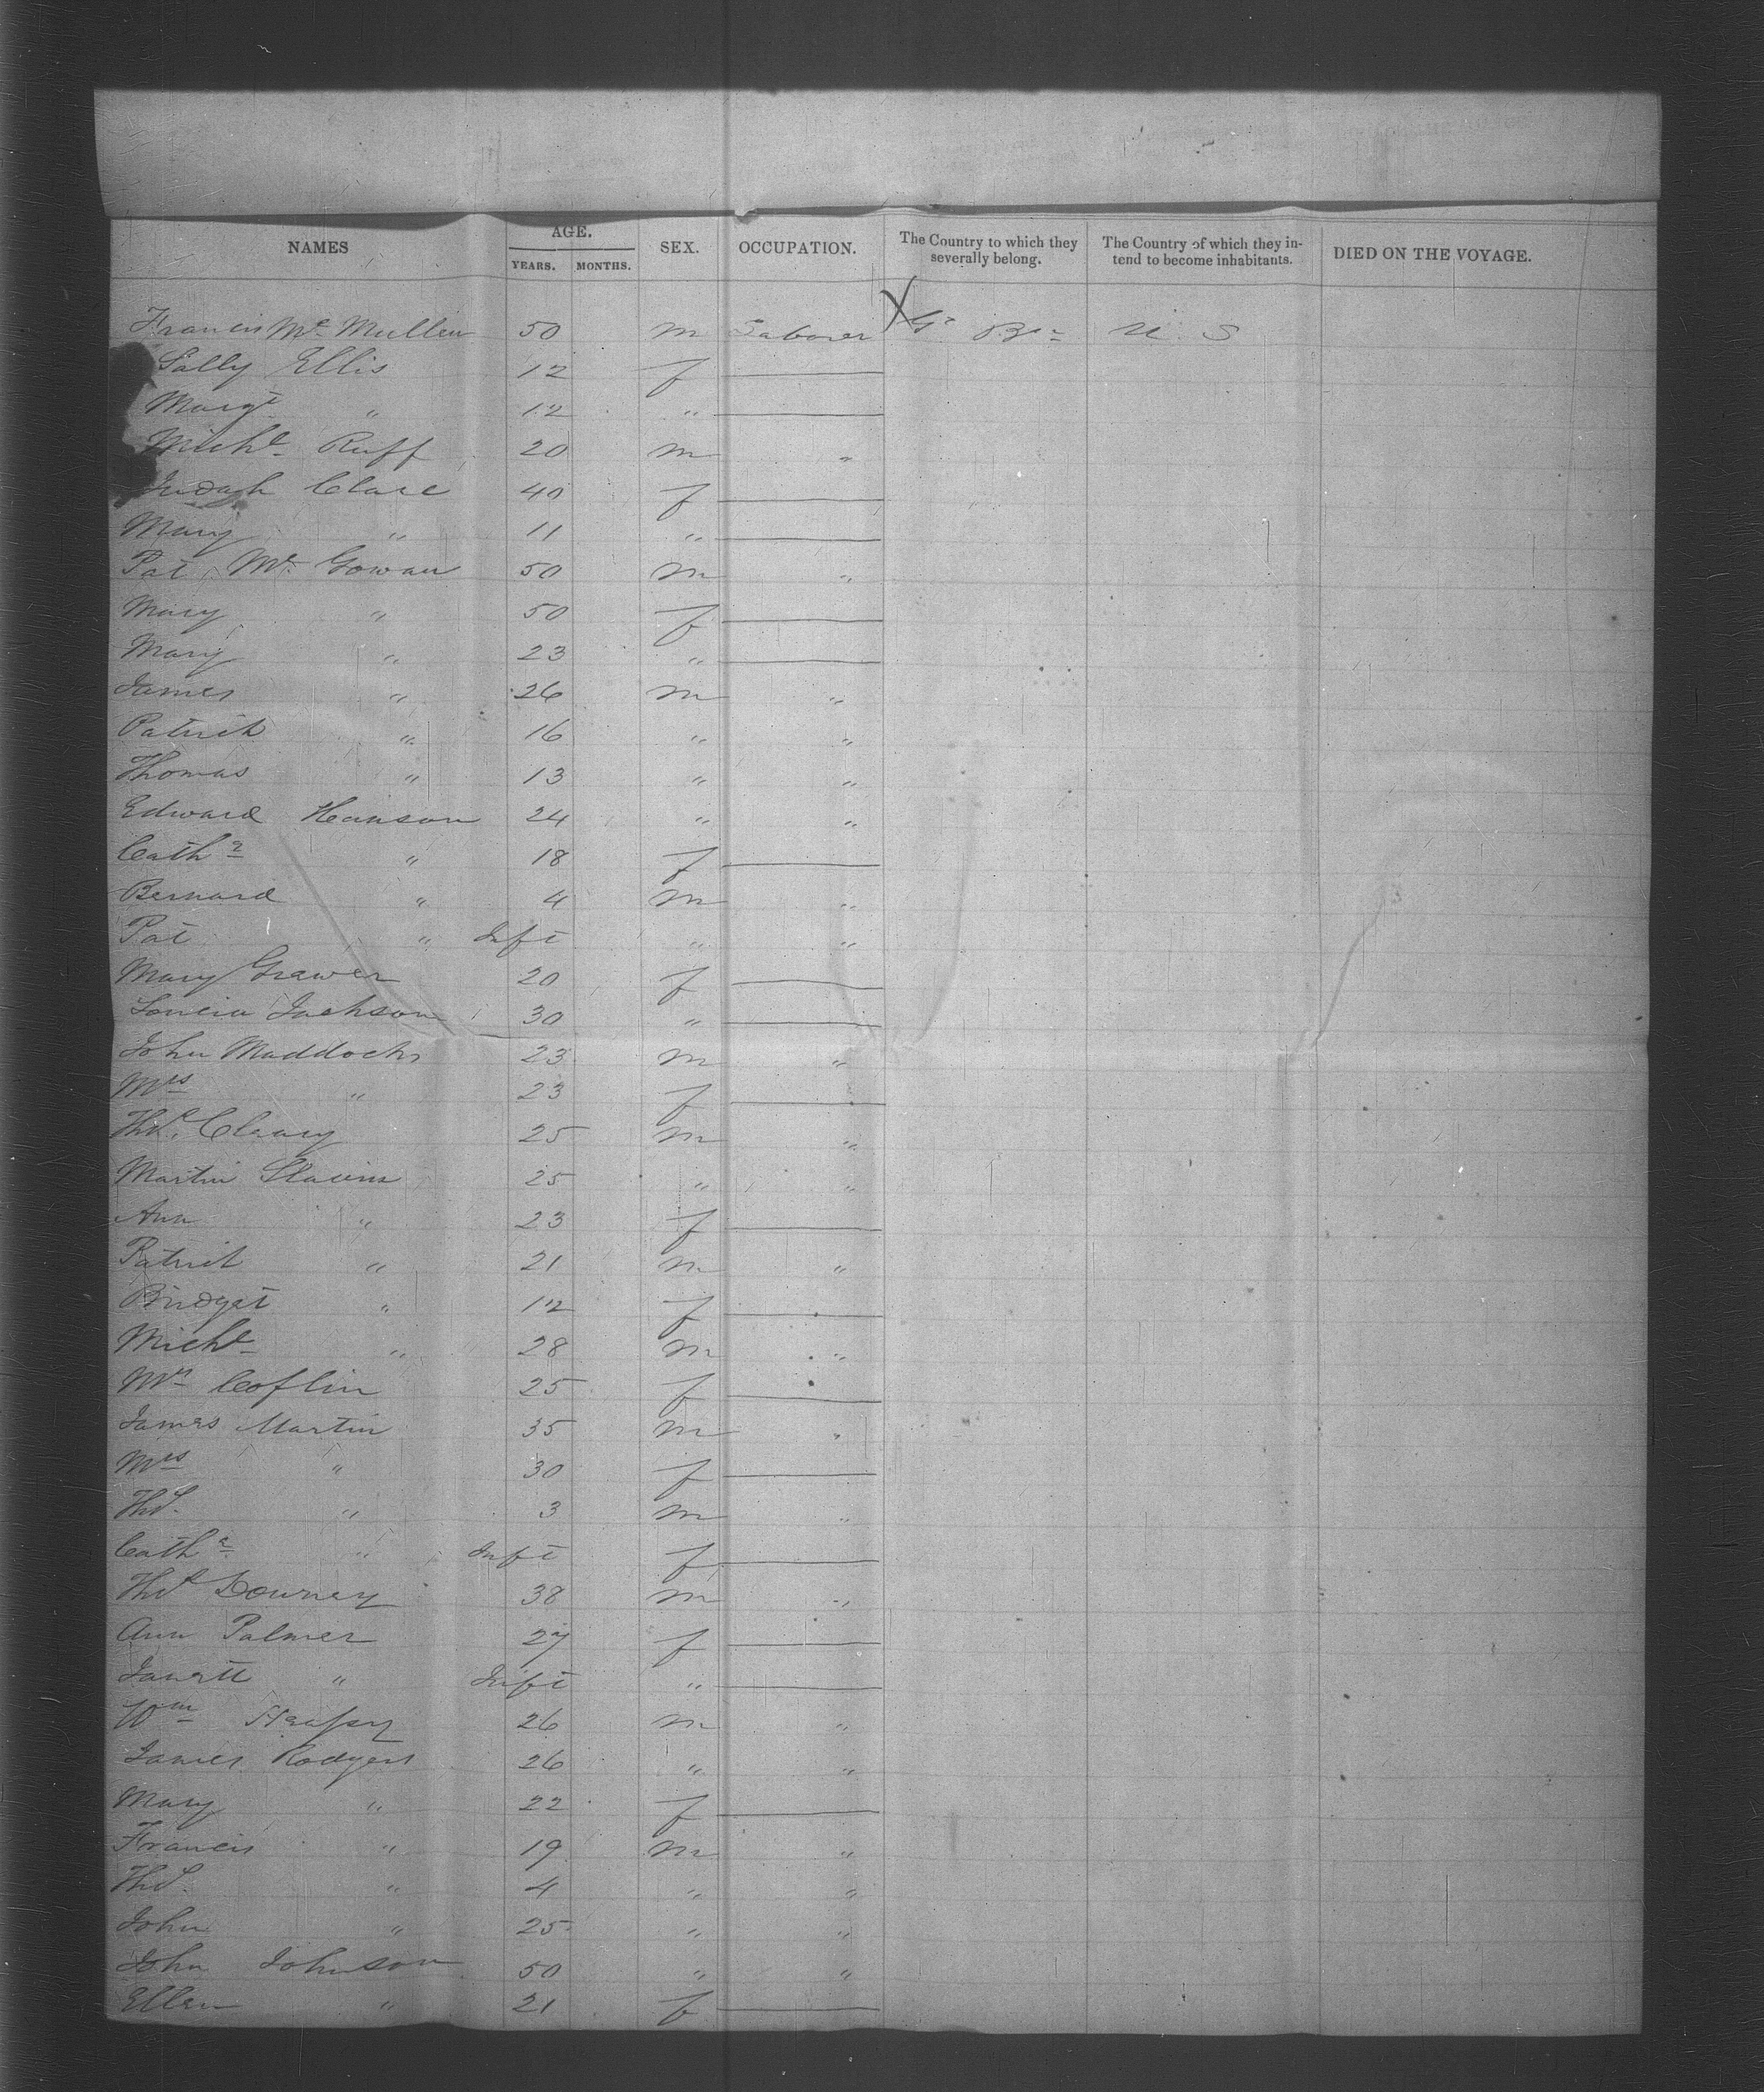 NAMES AGE. SEX. OCCUPATION. The Country to which they severally belong. The Country of which they intend to become inhabitants. DIED ON THE VOYAGE.
YEARS. MONTHS.
Francis Mc Mullen 50 m Laborer X Gt Bn U. S
Sally Ellis 12 f
Margt " 12 "
Michl Ruff 20 m "
Judagh Clare 40 f
Mary " 11 "
Pat Mc Gowan 50 m "
Mary " 50 f
Mary " 23 "
James " 26 m "
Patrick " 16 " "
Thomas " 13 " "
Edward Hanson 24 " "
Catha " 18 f
Bernard " 4 m "
Pat " Inft " "
Mary Grawer 20 f
Jackson 30 "
John Maddocks 23 m "
Mrs " 23 f
Thos. Cleary 25 m "
Martin Slavin 25 " "
Ann " 23 f
Patrick " 21 m "
Bridget " 12 f
Michl " 28 m "
Mrs Coflin 25 f
James Martin 35 m "
Mrs " 30 f
Ths. " 3 m "
Catha " Inft f
Thos Downey 38 m "
Ann Palmer 27 f
Janett " Inft "
Wm 26 m "
James Rodgers 26 " "
Mary " 22 f
Francis " 19 m "
Ths. " 4 " "
John " 25 " "
John Johnson 50 " "
Ellen " 21 f